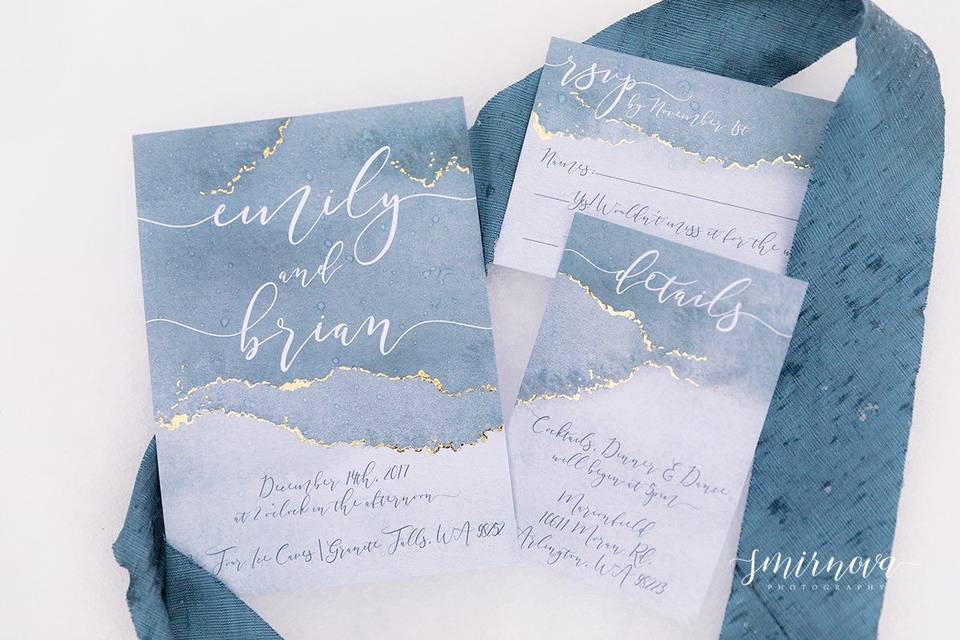 emily
and
brian
December 14th, 2017
at 2 o'clock in the afternoon
Four Ice Caves | Granite Falls, WA 98252
rsvp
by November 1st
Names:
Yes! Wouldn't miss it for the w
details
Cocktails, Dinner & Dance
will begin at 5pm
Marionfield
10611 Moran Rd.
Arlington, WA 98223
smirnova
PHOTOGRAPHY